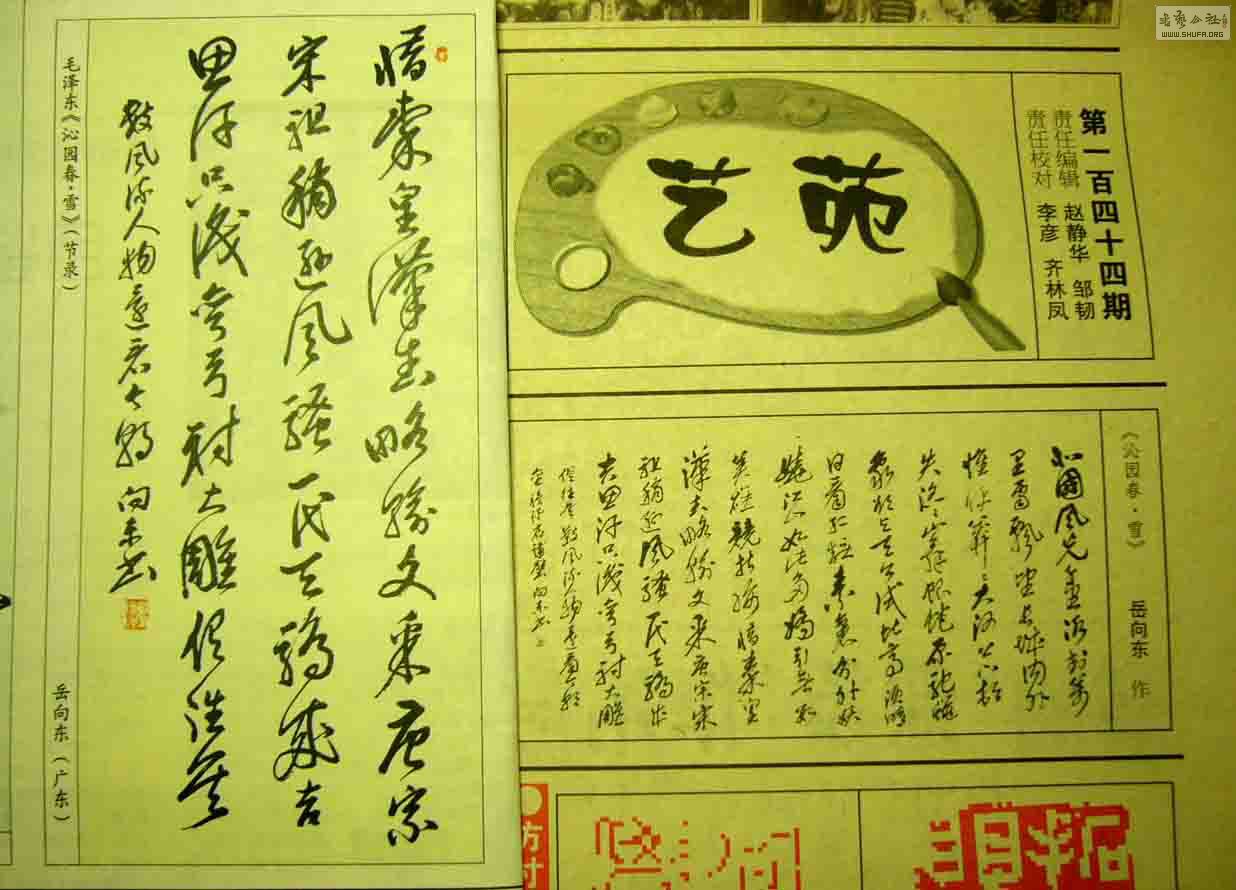 毛泽东《沁园春·雪》(节录)
岳向东(广东)
惜秦皇漢武略输文采唐宗
宋祖稍逊风骚一代天骄成吉
思汗只識弯弓射大雕俱往矣
数风流人物还看今朝 向东书
WWW.SHUFA.ORG
第一百四十四期
责任编辑 赵静华 邹韧
责任校对 李彦 齐林凤
艺苑
《沁园春·雪》 岳向东 作
北國风光千里冰封万
里雪飘望长城内外
惟余莽莽大河上下顿
失滔滔山舞银蛇原驰蜡
象欲与天公试比高须晴
日看红装素裹分外妖
娆江山如此多娇引无数
英雄競折腰惜秦皇
漢武略输文采唐宗宋
祖稍逊风骚一代天骄成
吉思汗只識弯弓射大雕
俱往矣数风流人物还看今朝
方寸